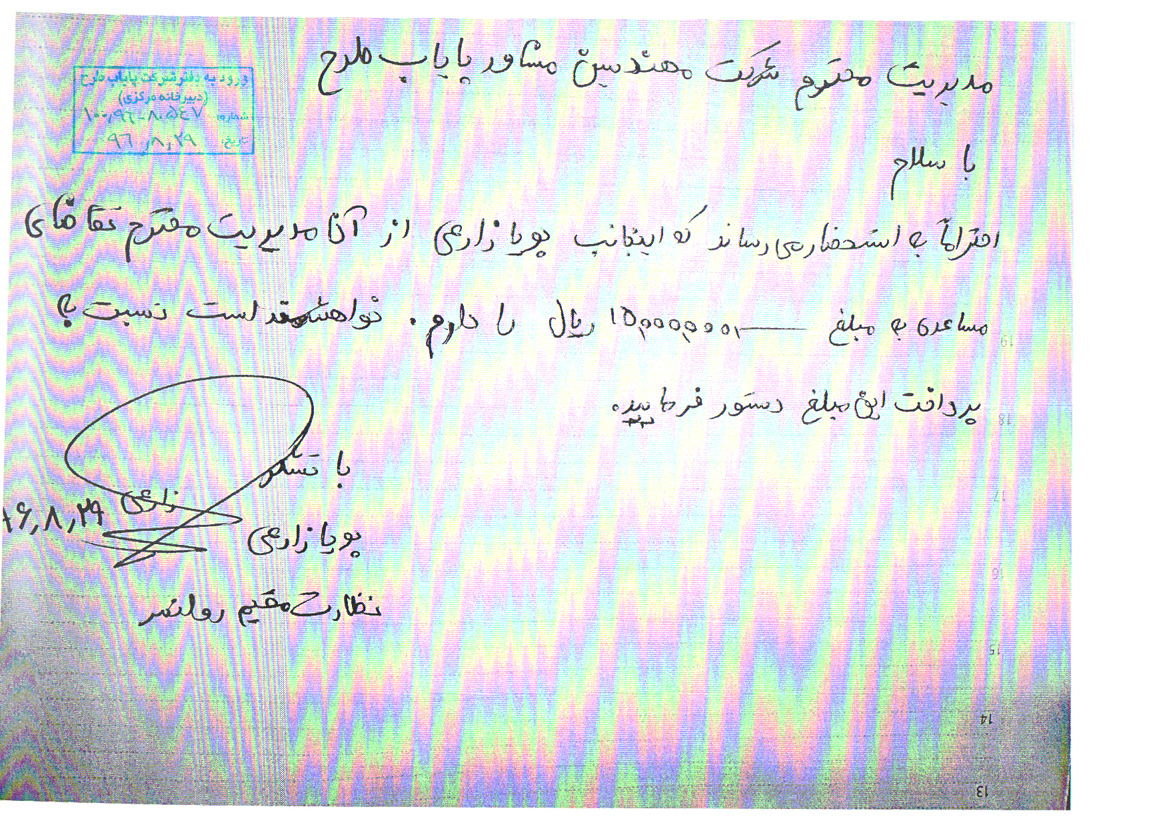 مدیریت محترم شرکت مهندسین مشاور پایاب طرح
ورود به دفتر شرکت پایاب طرح
(دبیرخانه مرکزی)
شماره:
تاریخ: ۹۶٫۸٫۲۹
با سلام
احتراماً به استحضار می رساند که اینجانب پویا زارعی از آن مدیریت محترم تقاضای
مساعدی به مبلغ ریال را دارم. خواهشمند است نسبت به
پرداخت این مبلغ دستور فرمایید.
با تشکر
زارعی ۹۶٫۸٫۲۹
پویا زارعی
نظارت مقیم
19
18
17
16
15
14
13